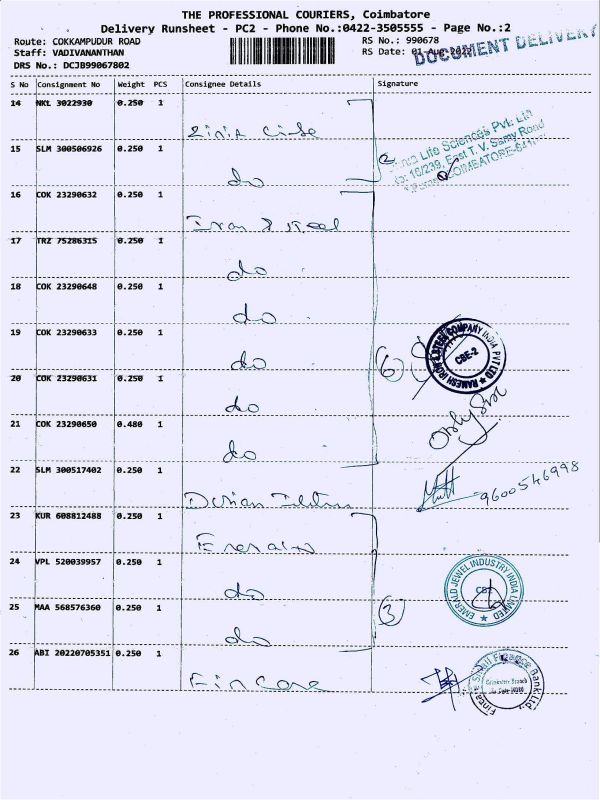 THE PROFESSIONAL COURIERS, Coimbatore
Delivery Runsheet - PC2 - Phone No.:0422-3505555 - Page No.:2
Route: COKKAMPUDUR ROAD
RS No.: 990678
Staff: VADIVANANTHAN
RS Date: 01-Aug-2022
DRS No.: DCJB99067802
DOCUMENT DELIVERY
S No Consignment No Weight PCS Consignee Details Signature
14 NKL 3022930 0.250 1
15 SLM 300506926 0.250 1
do
2
Life Sciences Pvt. Ltd
16/239, East T. V. Samy Road
COIMBATORE-641
16 COK 23290632 0.250 1
Iron & Steel
17 TRZ 75286315 0.250 1
do
18 COK 23290648 0.250 1
do
19 COK 23290633 0.250 1
do
20 COK 23290631 0.250 1
do
6
RAMESH IRON & STEEL COMPANY INDIA PVT LTD
CBE-2
21 COK 23290650 0.480 1
do
22 SLM 300517402 0.250 1
9600546998
23 KUR 608812488 0.250 1
24 VPL 520039957 0.250 1
do
25 MAA 568576360 0.250 1
do
3
EMERALD JEWEL INDUSTRY INDIA LIMITED
CBE
26 ABI 20220705351 0.250 1
Fincare
Fincare Small Finance Bank Ltd